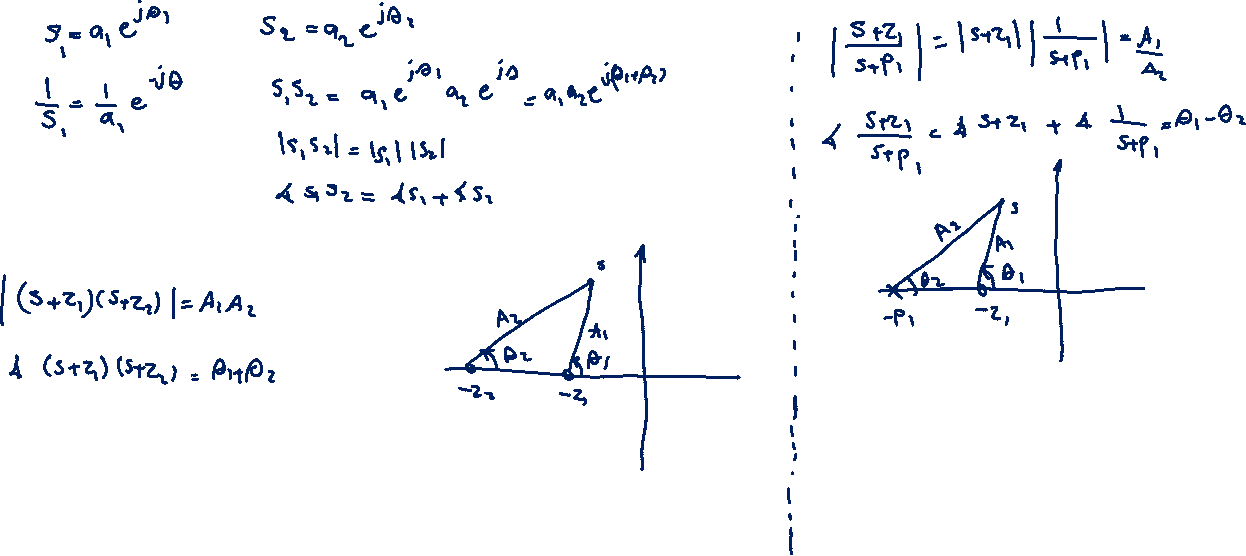 s₁ = a₁ e^{jθ₁}
s₂ = a₂ e^{jθ₂}
1/s₁ = 1/a₁ e^{-jθ}
s₁s₂ = a₁ e^{jθ₁} a₂ e^{jθ} = a₁a₂ e^{j(θ₁+θ₂)}
|s₁s₂| = |s₁| |s₂|
∡ s₁s₂ = ∡s₁ + ∡s₂
|(s+z₁)(s+z₂)| = A₁A₂
∡ (s+z₁)(s+z₂) = θ₁+θ₂
s
A₂
A₁
θ₂
θ₁
-z₂
-z₁
|(s+z₁)/(s+p₁)| = |s+z₁| |1/(s+p₁)| = A₁/A₂
∡ (s+z₁)/(s+p₁) = ∡ s+z₁ + ∡ 1/(s+p₁) = θ₁-θ₂
s
A₂
A₁
θ₂
θ₁
-p₁
-z₁